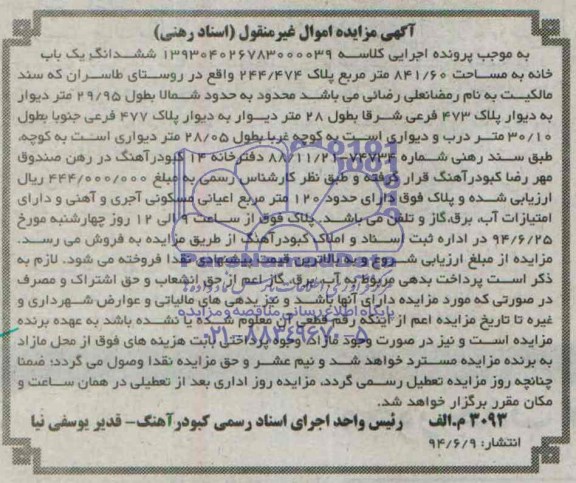 آگهی مزایده اموال غیرمنقول (اسناد رهنی)
به موجب پرونده اجرایی کلاسه ۱۳۹۳۰۴۰۲۶۷۸۳۰۰۰۰۳۹ ششدانگ یک باب
خانه به مساحت ۸۴۱/۶۰ متر مربع پلاک ۲۴۴/۴۷۴ واقع در روستای طاسران که سند
مالکیت به نام رمضانعلی رضائی می باشد محدود به حدود شمالا بطول ۲۹/۹۵ متر دیوار
به دیوار پلاک ۴۷۳ فرعی شرقا بطول ۲۸ متر دیوار به دیوار پلاک ۴۷۷ فرعی جنوبا بطول
۳۰/۱۰ متر درب و دیواری است به کوچه غربا بطول ۲۸/۰۵ متر دیواری است به کوچه.
طبق سند رهنی شماره ۷۴۷۳۴-۸۸/۱۱/۲۱ دفترخانه ۱۴ کبودرآهنگ در رهن صندوق
مهر رضا کبودرآهنگ قرار گرفته و طبق نظر کارشناس رسمی به مبلغ ۴۴۴/۰۰۰/۰۰۰ ریال
ارزیابی شده و پلاک فوق دارای حدود ۱۲۰ متر مربع اعیانی مسکونی آجری و آهنی و دارای
امتیازات آب، برق، گاز و تلفن می باشد. پلاک فوق از ساعت ۹ الی ۱۲ روز چهارشنبه مورخ
۹۴/۶/۲۵ در اداره ثبت اسناد و املاک کبودرآهنگ از طریق مزایده به فروش می رسد.
مزایده از مبلغ ارزیابی شروع و به بالاترین قیمت پیشنهادی نقدا فروخته می شود. لازم به
ذکر است پرداخت بدهی مربوط به آب، برق، گاز اعم از حق انشعاب و حق اشتراک و مصرف
در صورتی که مورد مزایده دارای آنها باشد و نیز بدهی های مالیاتی و عوارض شهرداری و
غیره تا تاریخ مزایده اعم از اینکه رقم قطعی آن معلوم شده یا نشده باشد به عهده برنده
مزایده است و نیز در صورت وجود مازاد، وجوه پرداختی بابت هزینه های فوق از محل مازاد
به برنده مزایده مسترد خواهد شد و نیم عشر و حق مزایده نقدا وصول می گردد؛ ضمنا
چنانچه روز مزایده تعطیل رسمی گردد، مزایده روز اداری بعد از تعطیلی در همان ساعت و
مکان مقرر برگزار خواهد شد.
۳۰۹۳ م.الف رئیس واحد اجرای اسناد رسمی کبودرآهنگ- قدیر یوسفی نیا
انتشار: ۹۴/۶/۹
پایگاه اطلاع رسانی مناقصه و مزایده
۰۲۱-۸۸۳۴۹۶۷۰-۵